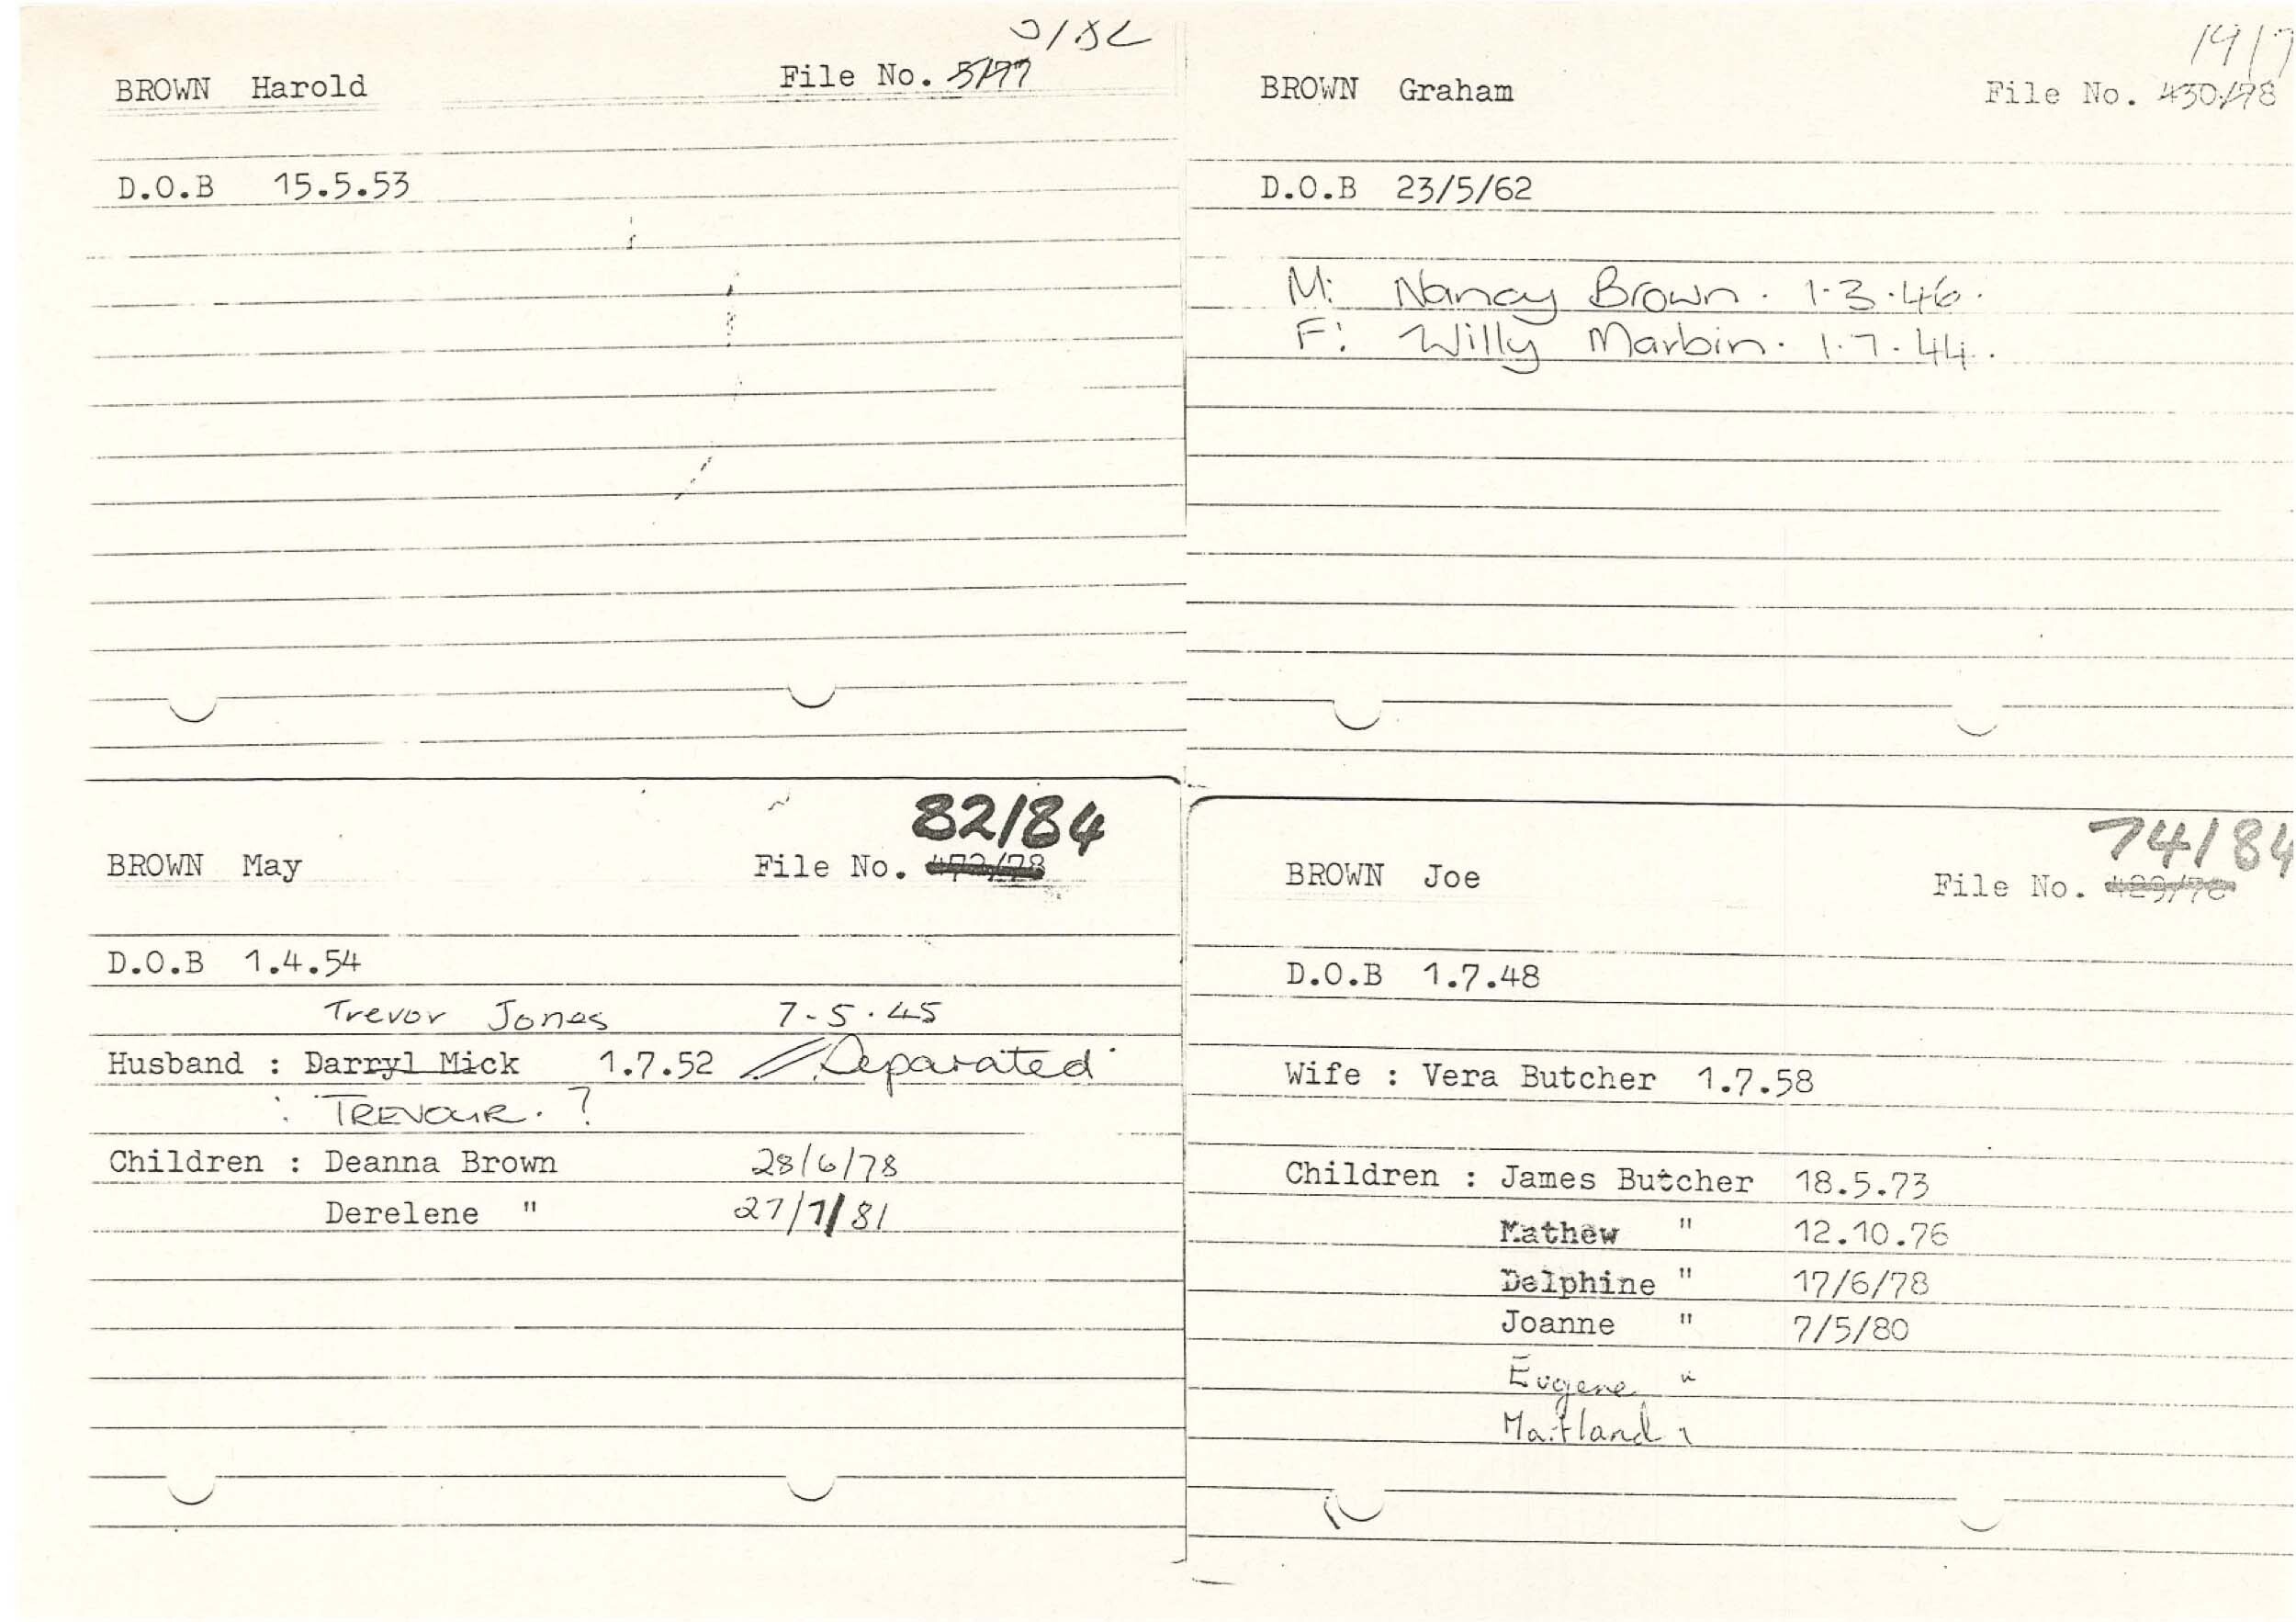 BROWN Harold File No. 5/77
D.O.B 15.5.53
BROWN Graham File No. 430/78
D.O.B 23/5/62
M: Nancy Brown. 1.3.46.
F: Willy Marbin. 1.7.44.
82/84
BROWN May File No.
D.O.B 1.4.54
Trevor Jones 7-5.45
Husband : Darryl Mick 1.7.52 // Separated
: TREVOUR. ?
Children : Deanna Brown 28/6/78
Derelene " 27/7/81
74/84
BROWN Joe File No.
D.O.B 1.7.48
Wife : Vera Butcher 1.7.58
Children : James Butcher 18.5.73
Mathew " 12.10.76
Delphine " 17/6/78
Joanne " 7/5/80
Eugene "
Maitland "